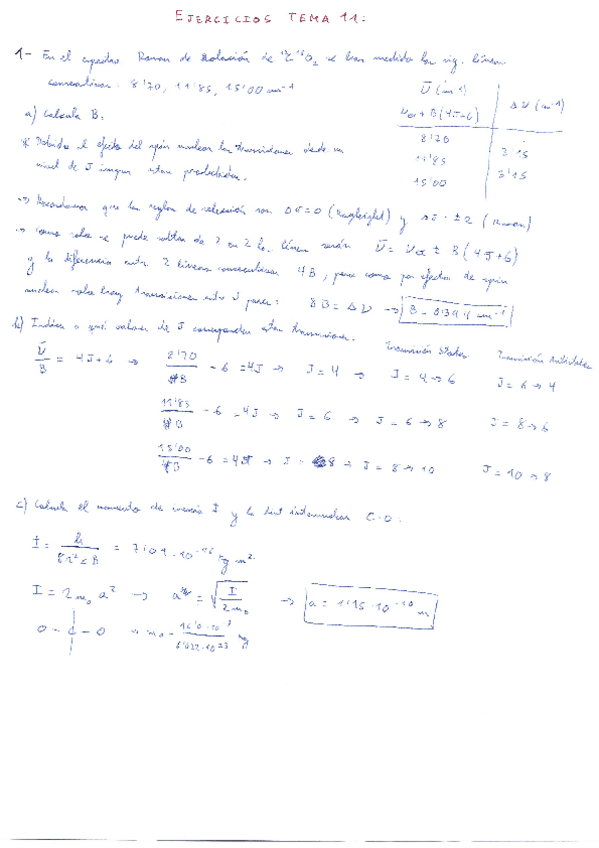 EJERCICIOS TEMA 11:
1- En el espectro Raman de rotación de ¹²C¹⁶O₂ se han medido las sig. líneas
consecutivas: 8'70, 11'85, 15'00 cm⁻¹
a) Calcula B.
ν̄ (cm⁻¹) Δν̄ (cm⁻¹)
ν̄ex + B(4J+6)
8'70
11'85 3'15
15'00 3'15
* Debido al efecto del spin nuclear las transiciones desde un
nivel de J impar están prohibidas.
→ Recordamos que las reglas de selección son ΔJ=0 (Rayleigh) y ΔJ=±2 (Raman)
→ Como solo se puede saltar de 2 en 2 las líneas serán ν̄ = ν̄ex ± B(4J+6)
y la diferencia entre 2 líneas consecutivas 4B, pero como por efectos de spin
nuclear solo hay transiciones entre J pares: 8B = Δν̄ → B = 0'394 cm⁻¹
b) Indica a qué valores de J corresponden estas transiciones.
Transición Stokes Transición AntiStokes
ν̄/B = 4J+6 → 8'70/B - 6 = 4J → J = 4 → J = 4→6 J = 6→4
11'85/B - 6 = 4J → J = 6 → J = 6→8 J = 8→6
15'00/B - 6 = 4J → J = 8 → J = 8→10 J = 10→8
c) Calcula el momento de inercia I y la dist internuclear C-O.
I = h/8π²cB = 7'09·10⁻⁴⁶ kg m².
I = 2m₀ a² → a = √(I/2m₀) → a = 1'15·10⁻¹⁰ m
O - C - O → m₀ = 16'0·10⁻³/6'022·10²³ kg